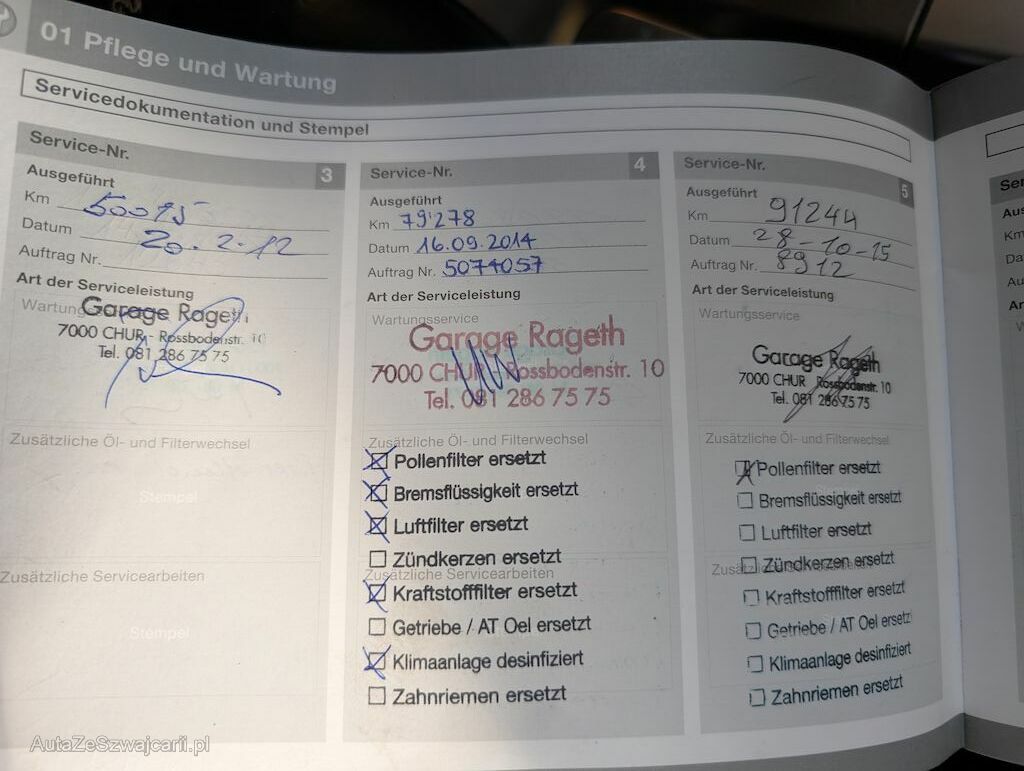 01 Pflege und Wartung
Servicedokumentation und Stempel
Service-Nr. 3
Ausgeführt
Km 50015
Datum 20.2.12
Auftrag Nr.
Art der Serviceleistung
Wartungs
Garage Rageth
7000 CHUR Rossbodenstr. 10
Tel. 081 286 75 75
Zusätzliche Öl- und Filterwechsel
Stempel
Zusätzliche Servicearbeiten
Stempel
Service-Nr. 4
Ausgeführt
Km 79'278
Datum 16.09.2014
Auftrag Nr. 5074057
Art der Serviceleistung
Wartungsservice
Garage Rageth
7000 CHUR Rossbodenstr. 10
Tel. 081 286 75 75
Zusätzliche Öl- und Filterwechsel
Pollenfilter ersetzt
Bremsflüssigkeit ersetzt
Luftfilter ersetzt
Zündkerzen ersetzt
Zusätzliche Servicearbeiten
Kraftstofffilter ersetzt
Getriebe / AT Oel ersetzt
Klimaanlage desinfiziert
Zahnriemen ersetzt
Service-Nr. 5
Ausgeführt
Km 91244
Datum 28-10-15
Auftrag Nr. 8912
Art der Serviceleistung
Wartungsservice
Garage Rageth
7000 CHUR Rossbodenstr. 10
Tel. 081 286 75 75
Zusätzliche Öl- und Filterwechsel
Pollenfilter ersetzt
Bremsflüssigkeit ersetzt
Luftfilter ersetzt
Zündkerzen ersetzt
Kraftstofffilter ersetzt
Getriebe / AT Oel ersetzt
Klimaanlage desinfiziert
Zahnriemen ersetzt
AutaZeSzwajcarii.pl